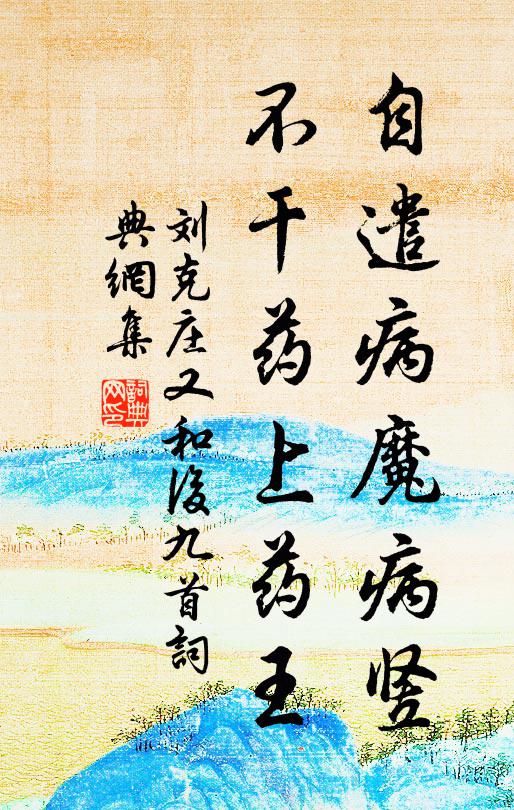 自遣病魔病竖
不干药上药王
刘克庄又和後九首詞
典網集
詞典网印